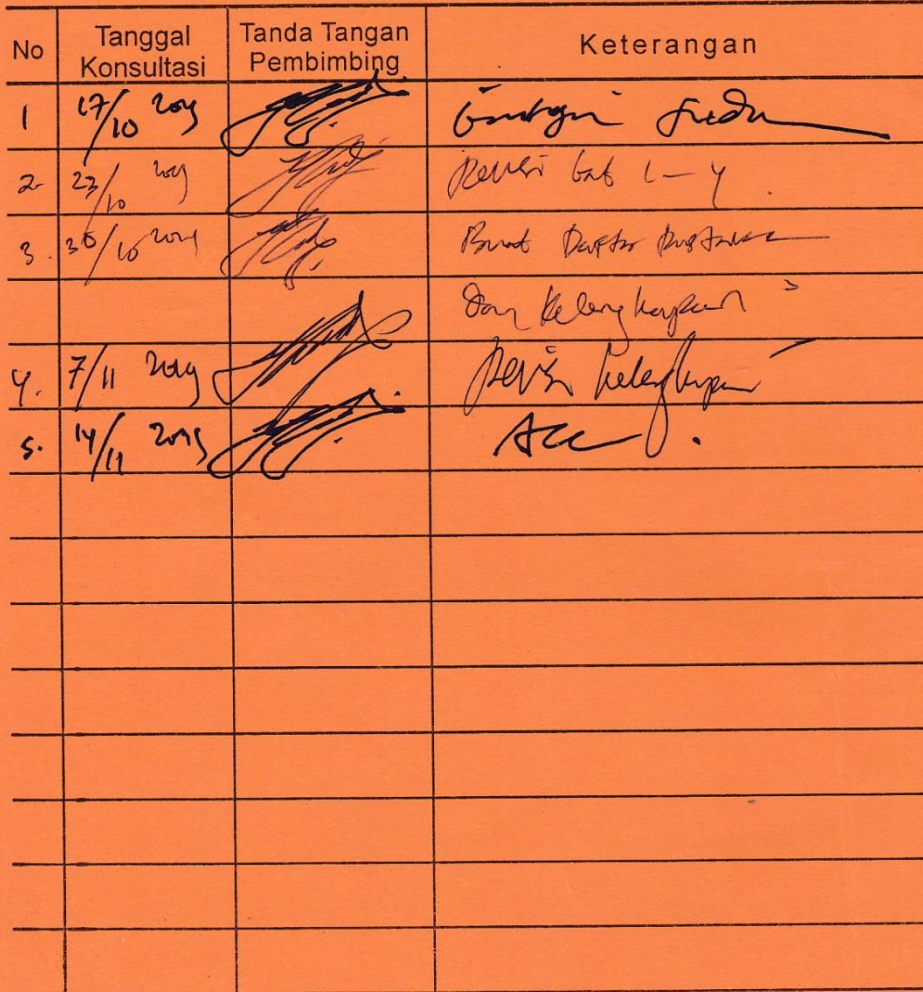 No Tanggal Konsultasi Tanda Tangan Pembimbing Keterangan
1 17/10 2019
2. 23/10 2019 Revisi bab 1 - 4
3. 30/10 2019 Buat Daftar Pustaka
Dan Kelengkapan
4. 7/11 2019 Revisi kelengkapan
5. 14/11 2019 Acc.